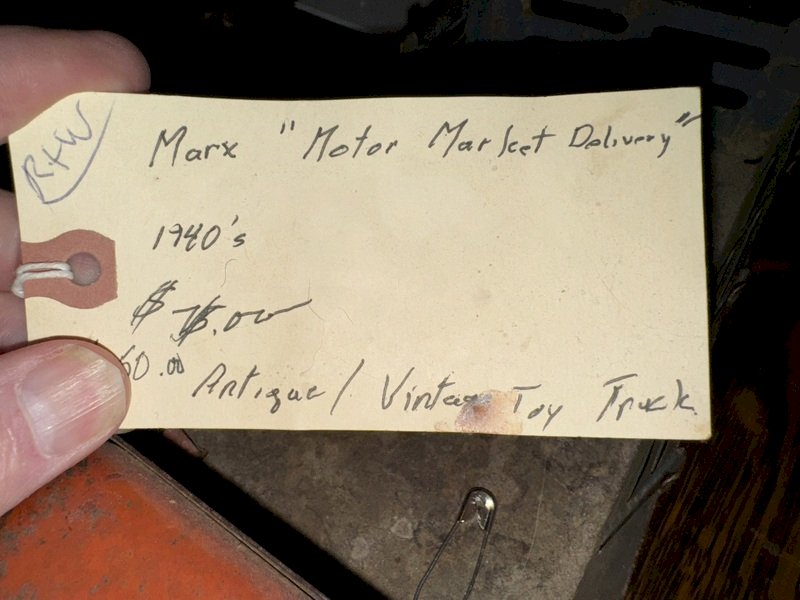 R+W
Marx "Motor Market Delivery"
1940's
$ 75.00
60.00
Antique / Vintage Toy Truck